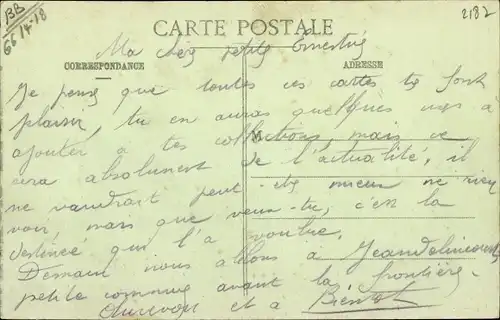 BB
66/14-18
2182
CARTE POSTALE
CORRESPONDANCE
ADRESSE
Ma petite
Je pense que toutes ces cartes te font
plaisir, tu en auras quelques unes à
ajouter à tes collections mais ce
sera absolument de l'actualité, il
ne vaudrait peut-etre mieux ne rien
voir, mais que veux-tu, c'est la
destinée qui l'a voulue.
Demain nous allons à Jeandelincourt
petite commune avant la frontière.
Aurevoir et à Bientôt
M